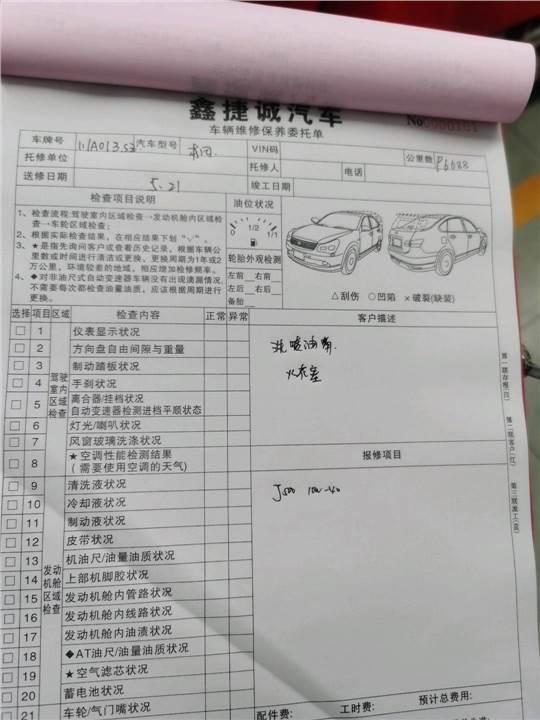 鑫捷诚汽车
车辆维修保养委托单
No
车牌号 汽车型号 VIN码 公里数
托修单位 托修人 电话
送修日期 5.21 竣工日期
检查项目说明
1、检查流程:驾驶室内区域检查→发动机舱内区域检查→车轮区域检查;
2、根据实际检查结果,在相应结果下划“√”。
3、★是指先询问客户或查看历史记录。根据车辆公里数或时间进行清洁或更换。更换周期为1年或2万公里,环境较差的地域,相应增加检修频率。
4、◆对非油尺式自动变速器车辆没有出现滴漏情况,不需要每次都检查油量油质,应该根据周期进行更换。
油位状况
0 1/2 1/1
轮胎外观检测
左前 右前
左后 右后
备胎
△刮伤 ○凹陷 ×破裂(缺装)
选择 项目 区域 检查内容 正常 异常
驾驶室内区域检查
1 仪表显示状况
2 方向盘自由间隙与重量
3 制动踏板状况
4 手刹状况
5 离合器/挂档状况
自动变速器检测进档平顺状态
6 灯光/喇叭状况
7 风窗玻璃洗涤状况
8 ★空调性能检测结果
(需要使用空调的天气)
发动机舱区域检查
9 清洗液状况
10 冷却液状况
11 制动液状况
12 皮带状况
13 机油尺/油量油质状况
14 上部机脚胶状况
15 发动机舱内管路状况
16 发动机舱内线路状况
17 发动机舱内油渍状况
18 ◆AT油尺/油量油质状况
19 ★空气滤芯状况
20 蓄电池状况
21 车轮/气门嘴状况
客户描述
洗喷油嘴.
火花塞
报修项目
J500 10w-40
配件费: 工时费: 预计总费用:
第一联存根(白) 第二联客户(红) 第三联派工(蓝)